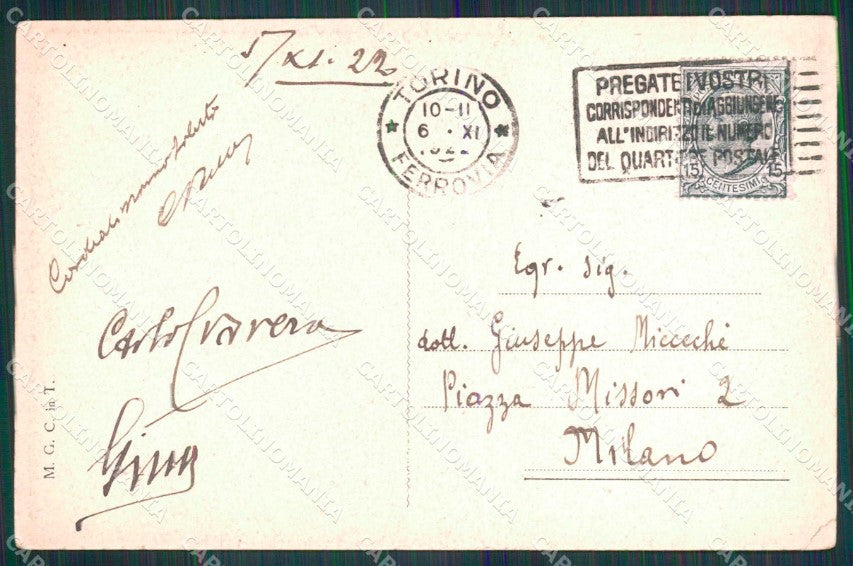 5/XI. 22
TORINO
10-11
6 · XI
1922
FERROVIA
PREGATE I VOSTRI
CORRISPONDENTI DI AGGIUNGERE
ALL'INDIRIZZO IL NUMERO
DEL QUARTIERE POSTALE
15 15
CENTESIMI
Cordialissimo saluto
Carlo Cravera
Gina
Egr. sig.
dott. Giuseppe Micceché
Piazza Missori 2
Milano
M. G. C. in T.
CARTOLINOMANIA